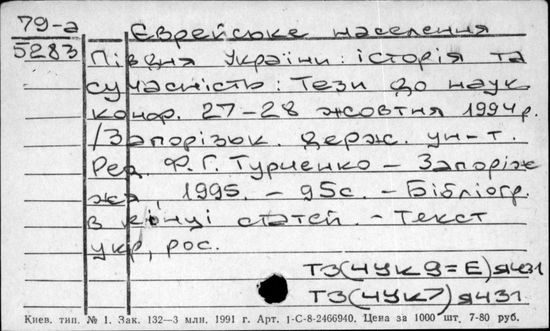 79-а
5283
Єврейське населення
Півдня України: історія та
сучасність: Тези до наук.
конф. 27-28 жовтня 1994 р.
/Запорізьк. держ. ун-т.
Ред. Ф.Г. Турченко – Запоріж
жя, 1995. – 95с. – Бібліогр.
в кінці статей. – Текст
укр, рос.
Т3(4УК9=Е)я431
Т3(4УК7)я431
Киев. тип. № 1. Зак. 132—3 млн. 1991 г. Арт. 1-С-8-2466940. Цена за 1000 шт. 7-80 руб.